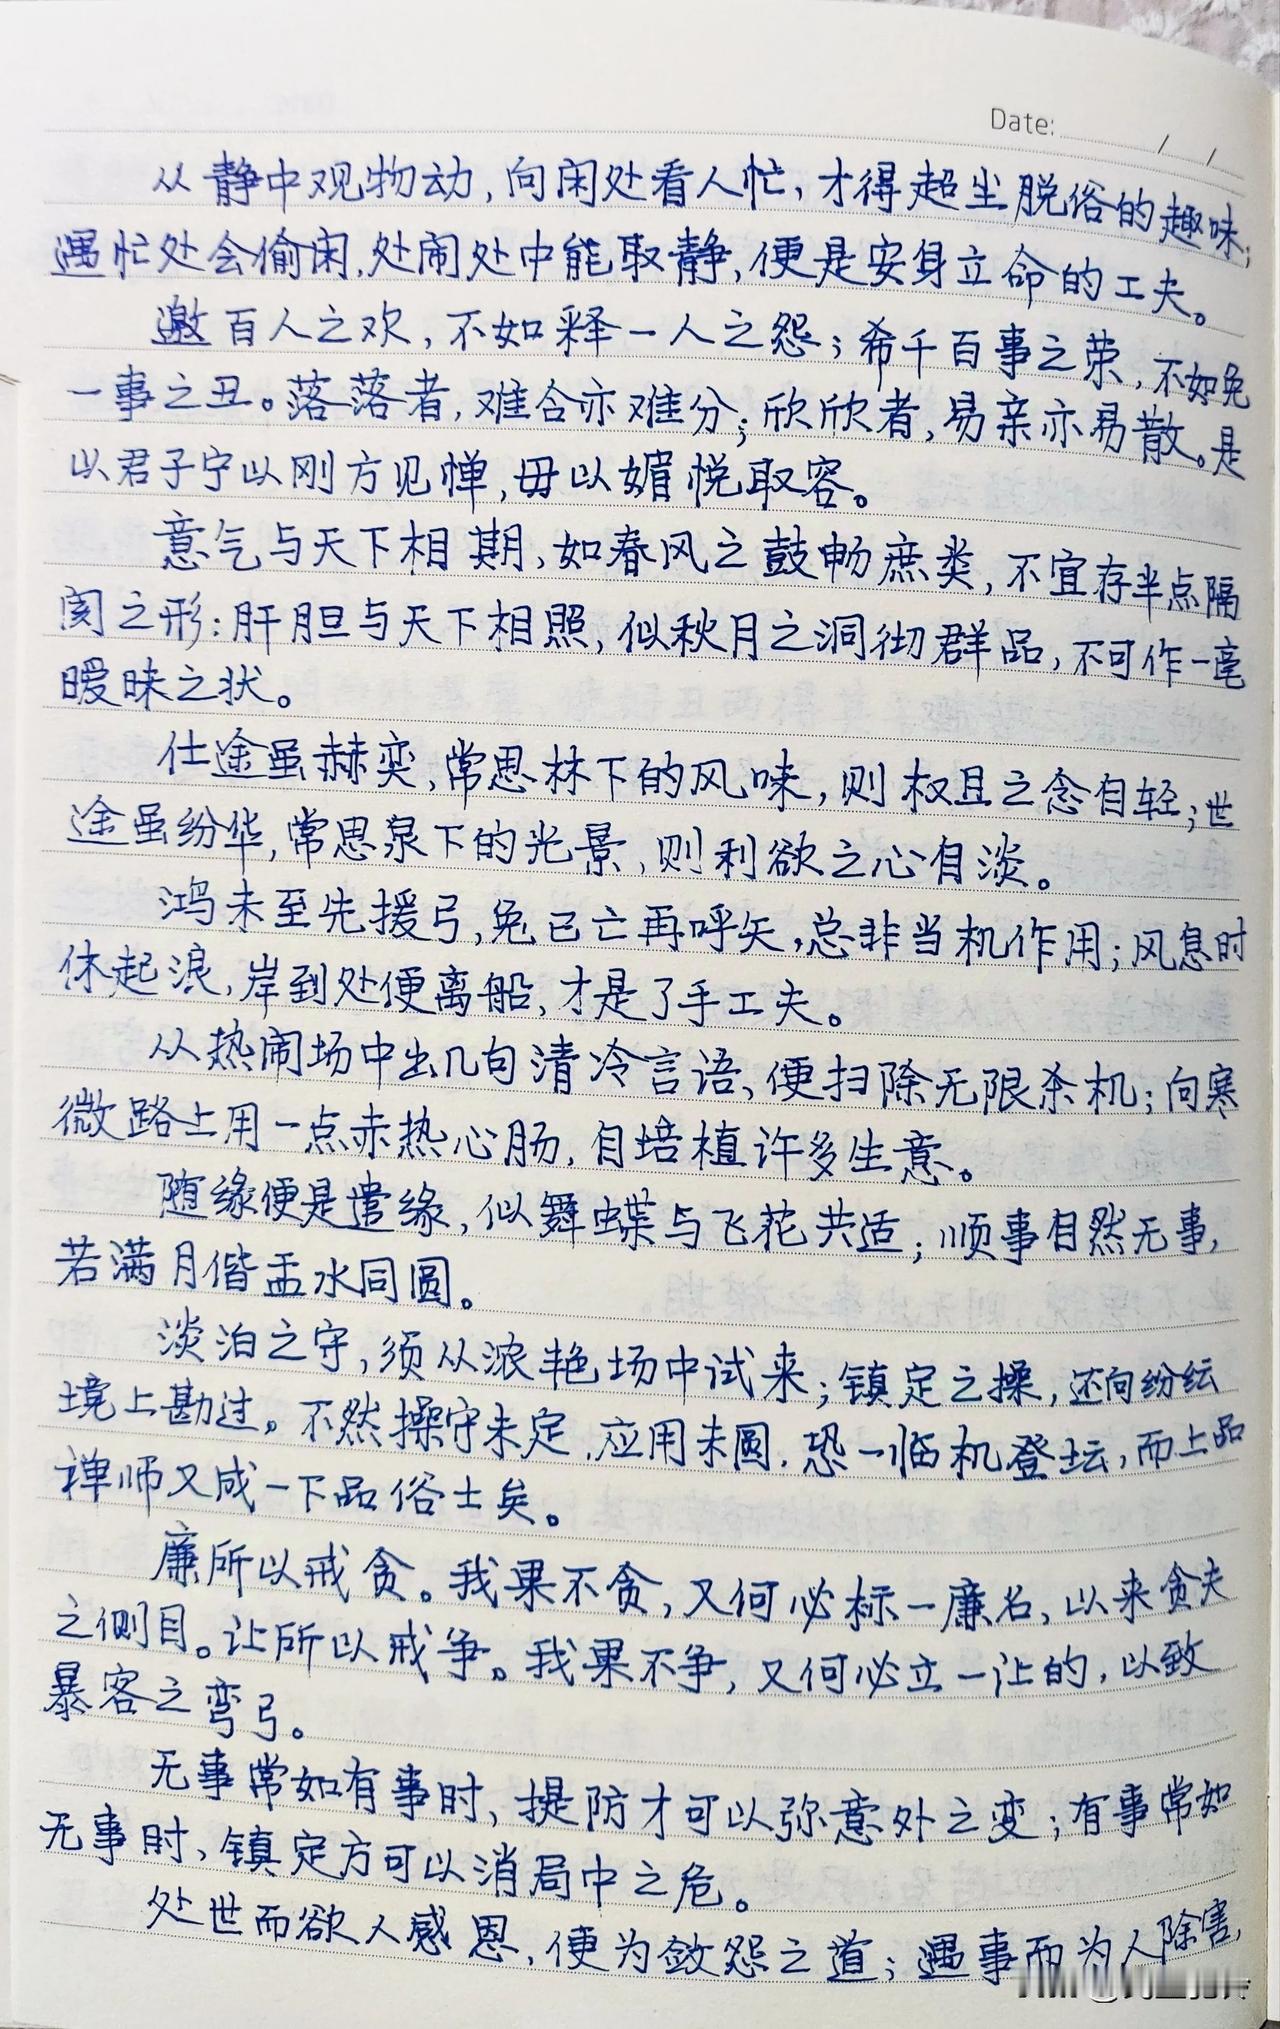 Date: / /
从静中观物动,向闲处看人忙,才得超尘脱俗的趣味;
遇忙处会偷闲,处闹处中能取静,便是安身立命的工夫。
邀百人之欢,不如释一人之怨;希千百事之荣,不如免
一事之丑。落落者,难合亦难分;欣欣者,易亲亦易散。是
以君子宁以刚方见惮,毋以媚悦取容。
意气与天下相期,如春风之鼓畅庶类,不宜存半点隔
阂之形;肝胆与天下相照,似秋月之洞彻群品,不可作一毫
暧昧之状。
仕途虽赫奕,常思林下的风味,则权且之念自轻;世
途虽纷华,常思泉下的光景,则利欲之心自淡。
鸿未至先援弓,兔已亡再呼矢,总非当机作用;风息时
休起浪,岸到处便离船,才是了手工夫。
从热闹场中出几句清冷言语,便扫除无限杀机;向寒
微路上用一点赤热心肠,自培植许多生意。
随缘便是遣缘,似舞蝶与飞花共适;顺事自然无事,
若满月偕盂水同圆。
淡泊之守,须从浓艳场中试来;镇定之操,还向纷纭
境上勘过。不然操守未定,应用未圆,恐一临机登坛,而上品
禅师又成一下品俗士矣。
廉所以戒贪。我果不贪,又何必标一廉名,以来贪夫
之侧目。让所以戒争。我果不争,又何必立一让的,以致
暴客之弯弓。
无事常如有事时,提防才可以弥意外之变;有事常如
无事时,镇定方可以消局中之危。
处世而欲人感恩,便为敛怨之道;遇事而为人除害,